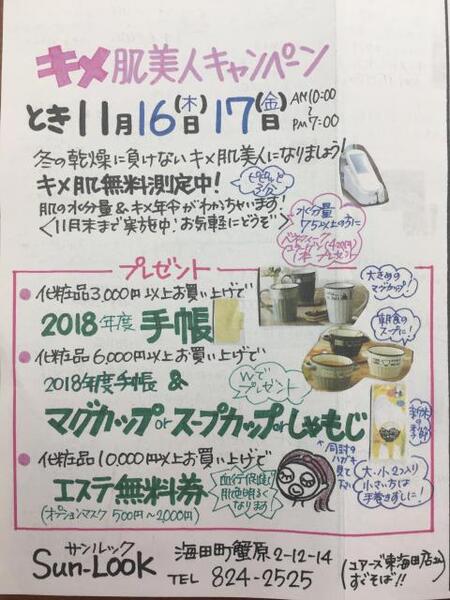 キメ肌美人キャンペーン
とき11月16日(木)17日(金) AM10:00〜PM7:00
冬の乾燥に負けないキメ肌美人になりましょう!
キメ肌無料測定中!
肌の水分量&キメ年令がわかちゃいます!
<11月末まで実施中!お気軽にどうぞ>
水分量
75以上の方に
1本プレゼント
プレゼント
化粧品3,000円以上お買い上げで
2018年度手帳
大きめの
マグカップ!
朝食の
スープに!
化粧品6,000円以上お買い上げで
2018年度手帳&
Wで
プレゼント
マグカップorスープカップorしゃもじ
新米の
季節
同封の
ハガキ
見て
下さい
大・小2つ入り
小さい方は
手巻きずしに!
化粧品10,000円以上お買い上げで
エステ無料券
(オプションマスク 500円~2,000円)
血行促進で
肌色明るく
なります
サンルック
Sun-Look
海田町蟹原2-12-14
TEL 824-2525
(ユアーズ東海田店さん
すぐそば!!)